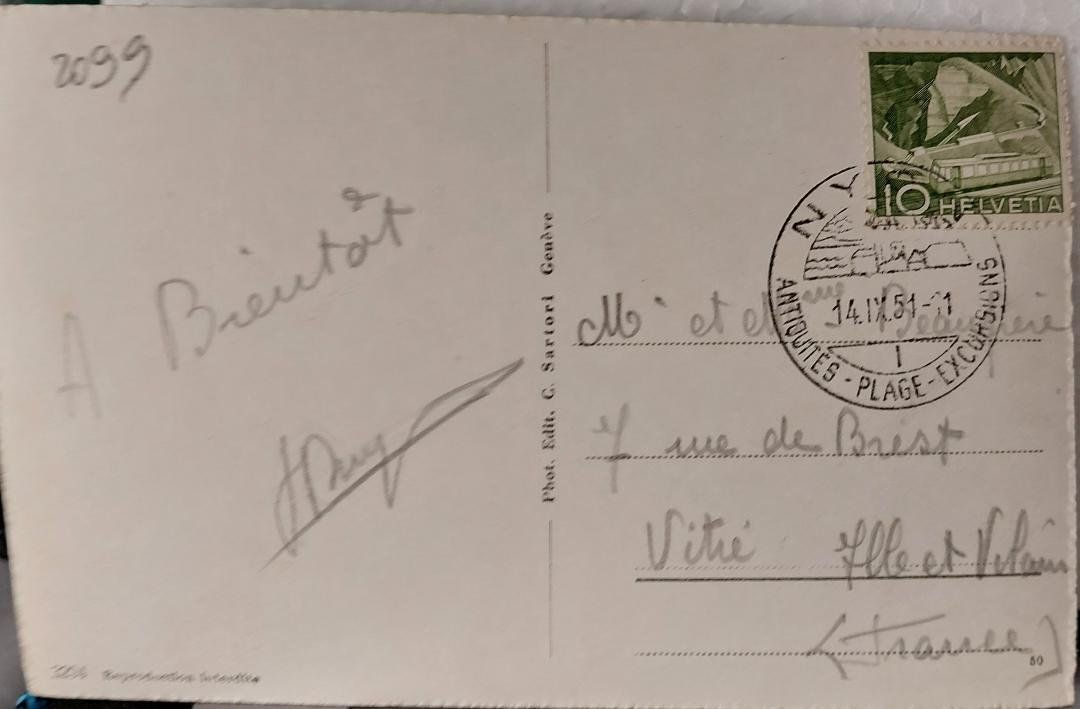 2099
A Bientôt
Phot. Edit. C. Sartori Genève
10 HELVETIA
NY
14.IX.51-
1
ANTIQUITÉS - PLAGE - EXCURSIONS
Mr et Mme
7 rue de Brest
Vitré Ille et Vilaine
(France)
50
Reproduction interdite